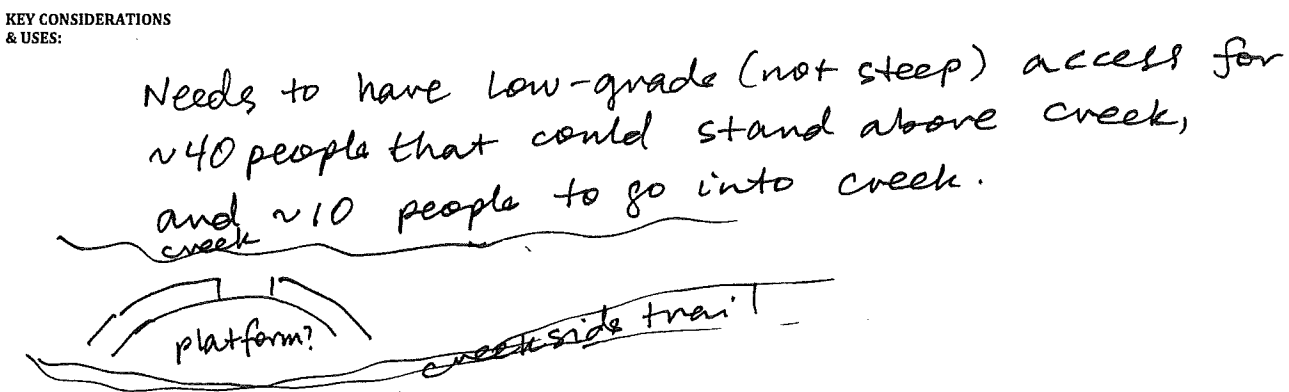 KEY CONSIDERATIONS
& USES:
Needs to have low-grade (not steep) access for
~40 people that could stand above creek,
and ~10 people to go into creek.
creek
platform?
creekside trail